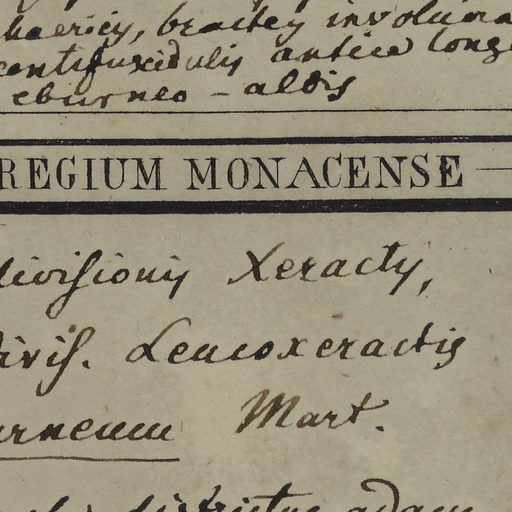 haericis, bracteis involucra
centifuscidulis antice long
eburneo - albis
REGIUM MONACENSE
divisionis Xeractis,
divis. Leucoxeractis
urneum Mart.
districtus adam